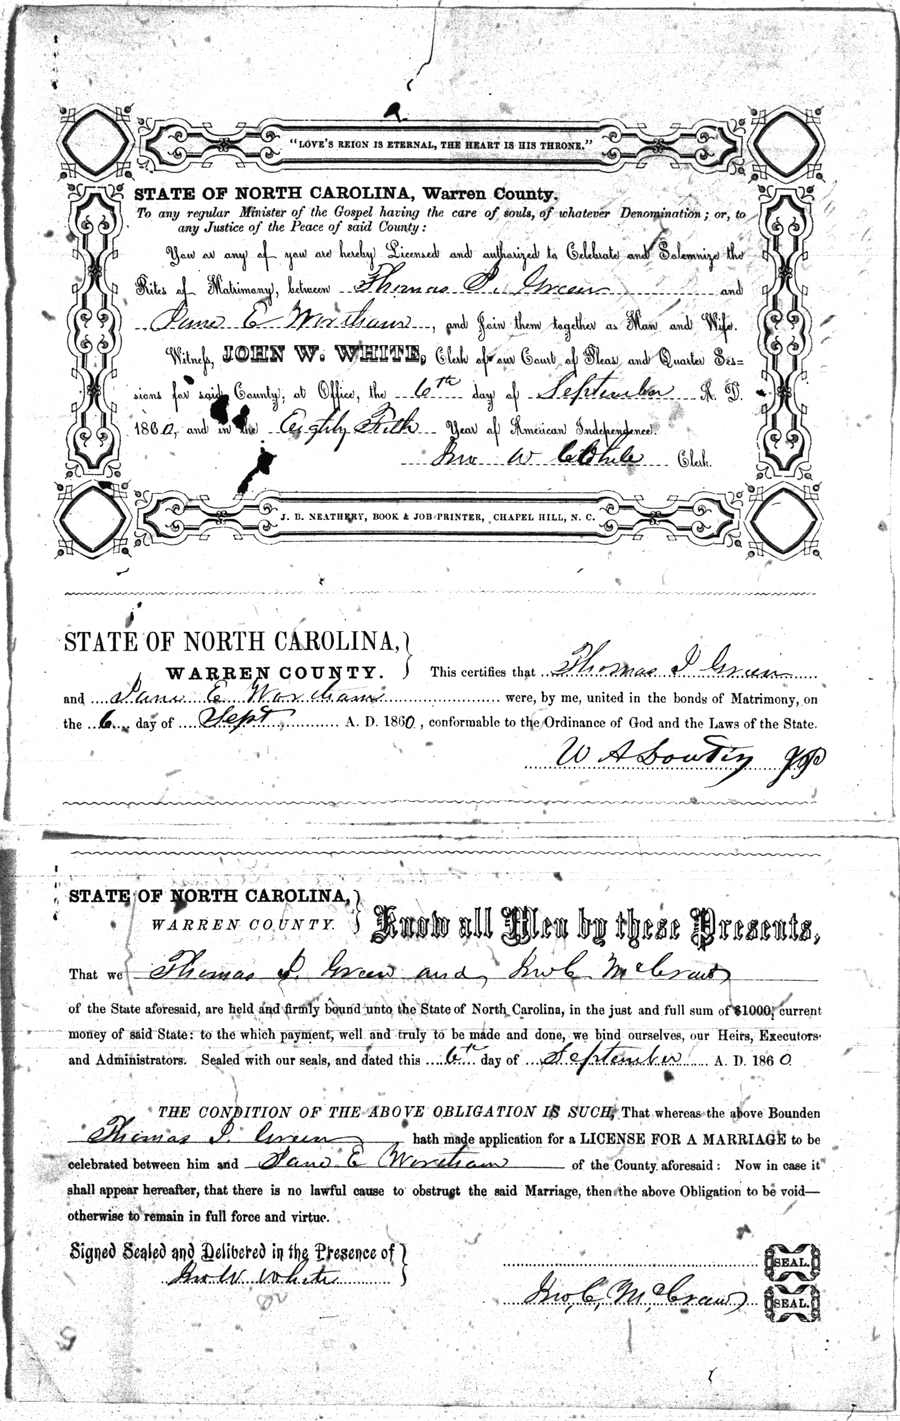 "LOVE'S REIGN IS ETERNAL, THE HEART IS HIS THRONE."
STATE OF NORTH CAROLINA, Warren County.
To any regular Minister of the Gospel having the care of souls, of whatever Denomination; or, to
any Justice of the Peace of said County:
You or any of you are hereby Licensed and authorized to Celebrate and Solemnize the
Rites of Matrimony, between Thomas I. Green and
Jane E Wortham, and Join them together as Man and Wife.
Witness, JOHN W. WHITE, Clerk of our Court of Pleas and Quarter Ses-
sions for said County, at Office, the 6th day of September A. D.
1860, and in the Eighty Fifth Year of American Independence.
Jno W White Clerk.
J. B. NEATHERY, BOOK & JOB PRINTER, CHAPEL HILL, N. C.
STATE OF NORTH CAROLINA,
WARREN COUNTY. This certifies that Thomas I Green
and Jane E Wortham were, by me, united in the bonds of Matrimony, on
the 6 day of Sept A. D. 1860, conformable to the Ordinance of God and the Laws of the State.
W A JP
STATE OF NORTH CAROLINA,
WARREN COUNTY. Know all Men by these Presents,
That we Thomas I. Green and Jno C McCraw
of the State aforesaid, are held and firmly bound unto the State of North Carolina, in the just and full sum of $1000, current
money of said State: to the which payment, well and truly to be made and done, we bind ourselves, our Heirs, Executors
and Administrators. Sealed with our seals, and dated this 6th day of September A. D. 1860
THE CONDITION OF THE ABOVE OBLIGATION IS SUCH, That whereas the above Bounden
Thomas I. Green hath made application for a LICENSE FOR A MARRIAGE to be
celebrated between him and Jane E Wortham of the County aforesaid: Now in case it
shall appear hereafter, that there is no lawful cause to obstruct the said Marriage, then the above Obligation to be void—
otherwise to remain in full force and virtue.
Signed Sealed and Delivered in the Presence of
Jno W White
SEAL.
Jno, C, McCraw SEAL.